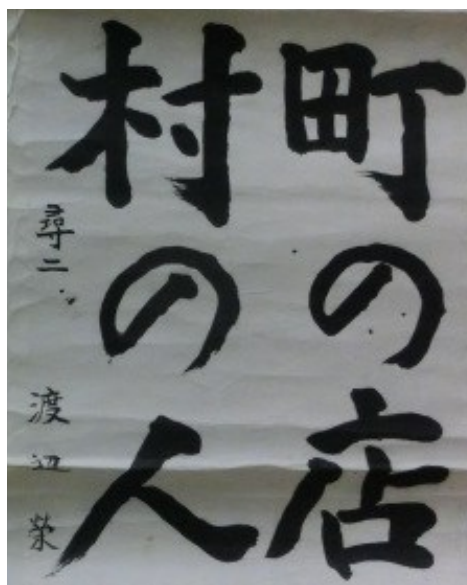 町の店
村の人
尋二 渡辺栄